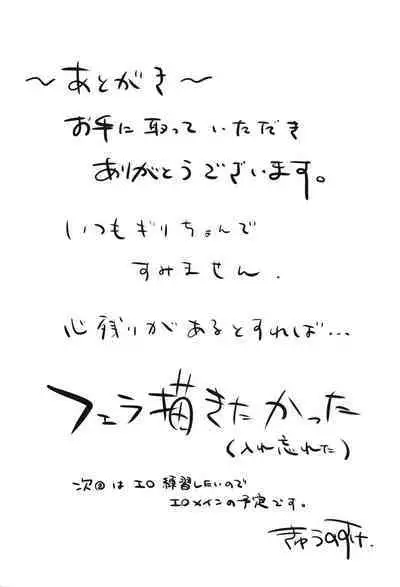 ～あとがき～
お手に取っていただき
ありがとうございます。
いつもギリちょんで
すみません.
心残りがあるとすれば...
フェラ描きたかった
(入れ忘れた)
次回は エロ 練習したいので
エロメインの予定です。